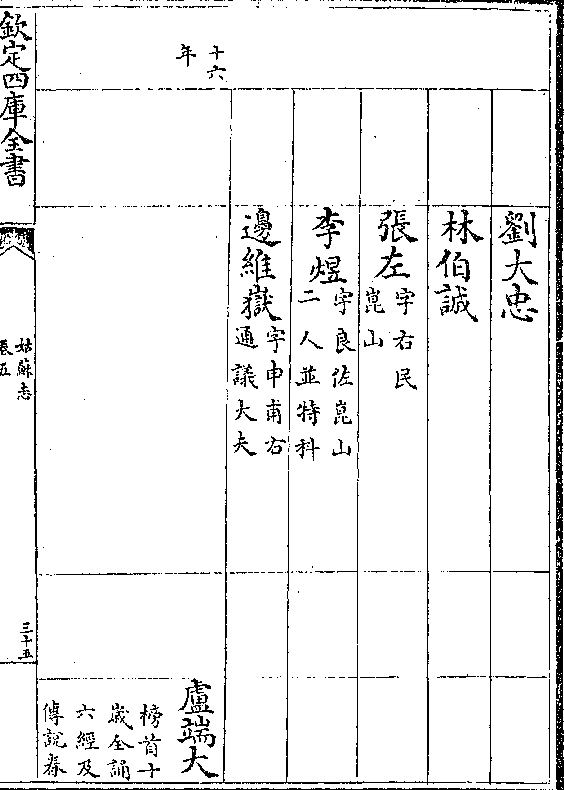 劉大忠
林伯誠
張左
字右民
崑山
李煜
字良佐崑山
二人並特科
邊維嶽
字申甫右
通議大夫
十六
年
盧端大
榜首十
歲全誦
六經及
傳說春
欽定四庫全書
姑蘇志
卷五
三十五